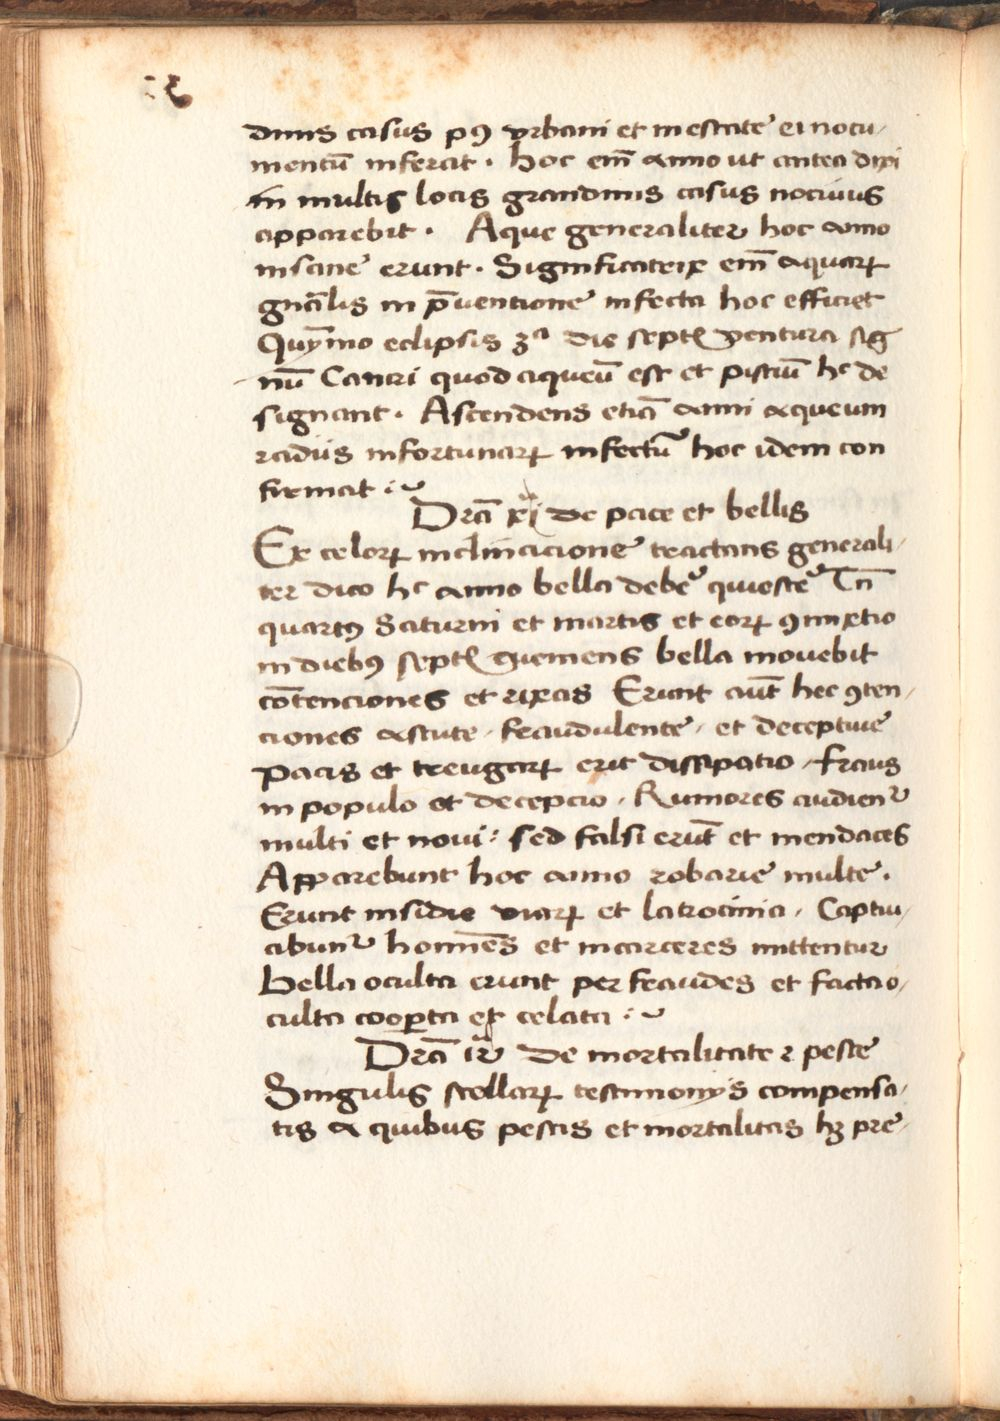 dinis casus pꝯ vrbani et in estate ei nocu/
mentū inferat · hoc em̄ anno ut antea dixi
in multis locis grandinis casus nociuus
apparebit · Aque generaliter hoc anno
insane erunt · Significatrix em̄ aquarꝝ
gnālis in p̄uentione infecta hoc efficiet
Quȳmo eclipsis 3ᵃ die septē ventura sig
nū Cancri quod aqueū est et pisciū hᶜ de
signant · Ascendens etiā anni aqueum
radiis infortunarꝝ infectū hoc idem con
firmat :~
Drā xi de pace et bellis
Ex celorꝝ inclinacione tractans generali/
ter dico hᶜ anno bella debeʳ quiesceʳ Tn̄
quartꝯ Saturni et martis et eorꝝ ꝯmixtio
in diebꝯ septē veniens bella mouebit
cōtenciones et rixas Erunt aūt hec ꝯten/
ciones astute · fraudulente · et deceptiue
Pacis et treugarꝝ erit dissipatio · fraus
in populo et decepcio · Rumores audienʳ
multi et noui : sed falsi erūt et mendaces
Apparebunt hoc anno robarie multe ·
Erunt insidie viarꝝ et latrocinia · Captiu/
abunʳ homīes et incarceres mittentur
Bella oculta erunt per fraudes et facta o/
culta coop̄ta et celata :~
Drā de mortalitate ⁊ peste
Singulis stellarꝝ testimonijs compensa/
tis a quibus pestis et mortalitas hꝫ pre/